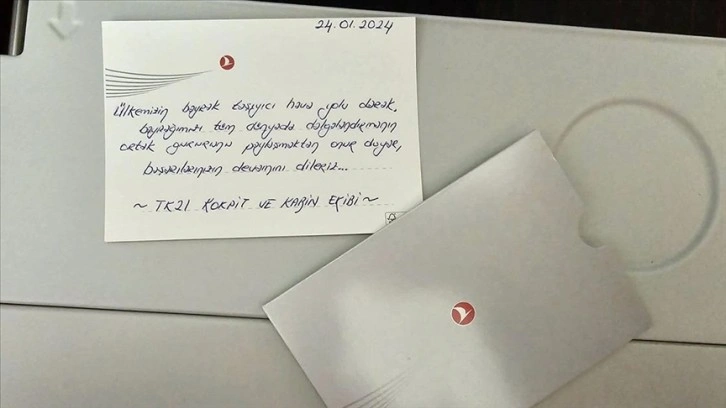 24.01.2024
Ülkemizin bayrak taşıyıcı hava yolu olarak,
bayrağımızı tüm dünyada dalgalandırmanın
ortak gururunu paylaşmaktan onur duyar,
başarılarınızın devamını dileriz...
~ TK21 KOKPİT VE KABİN EKİBİ ~